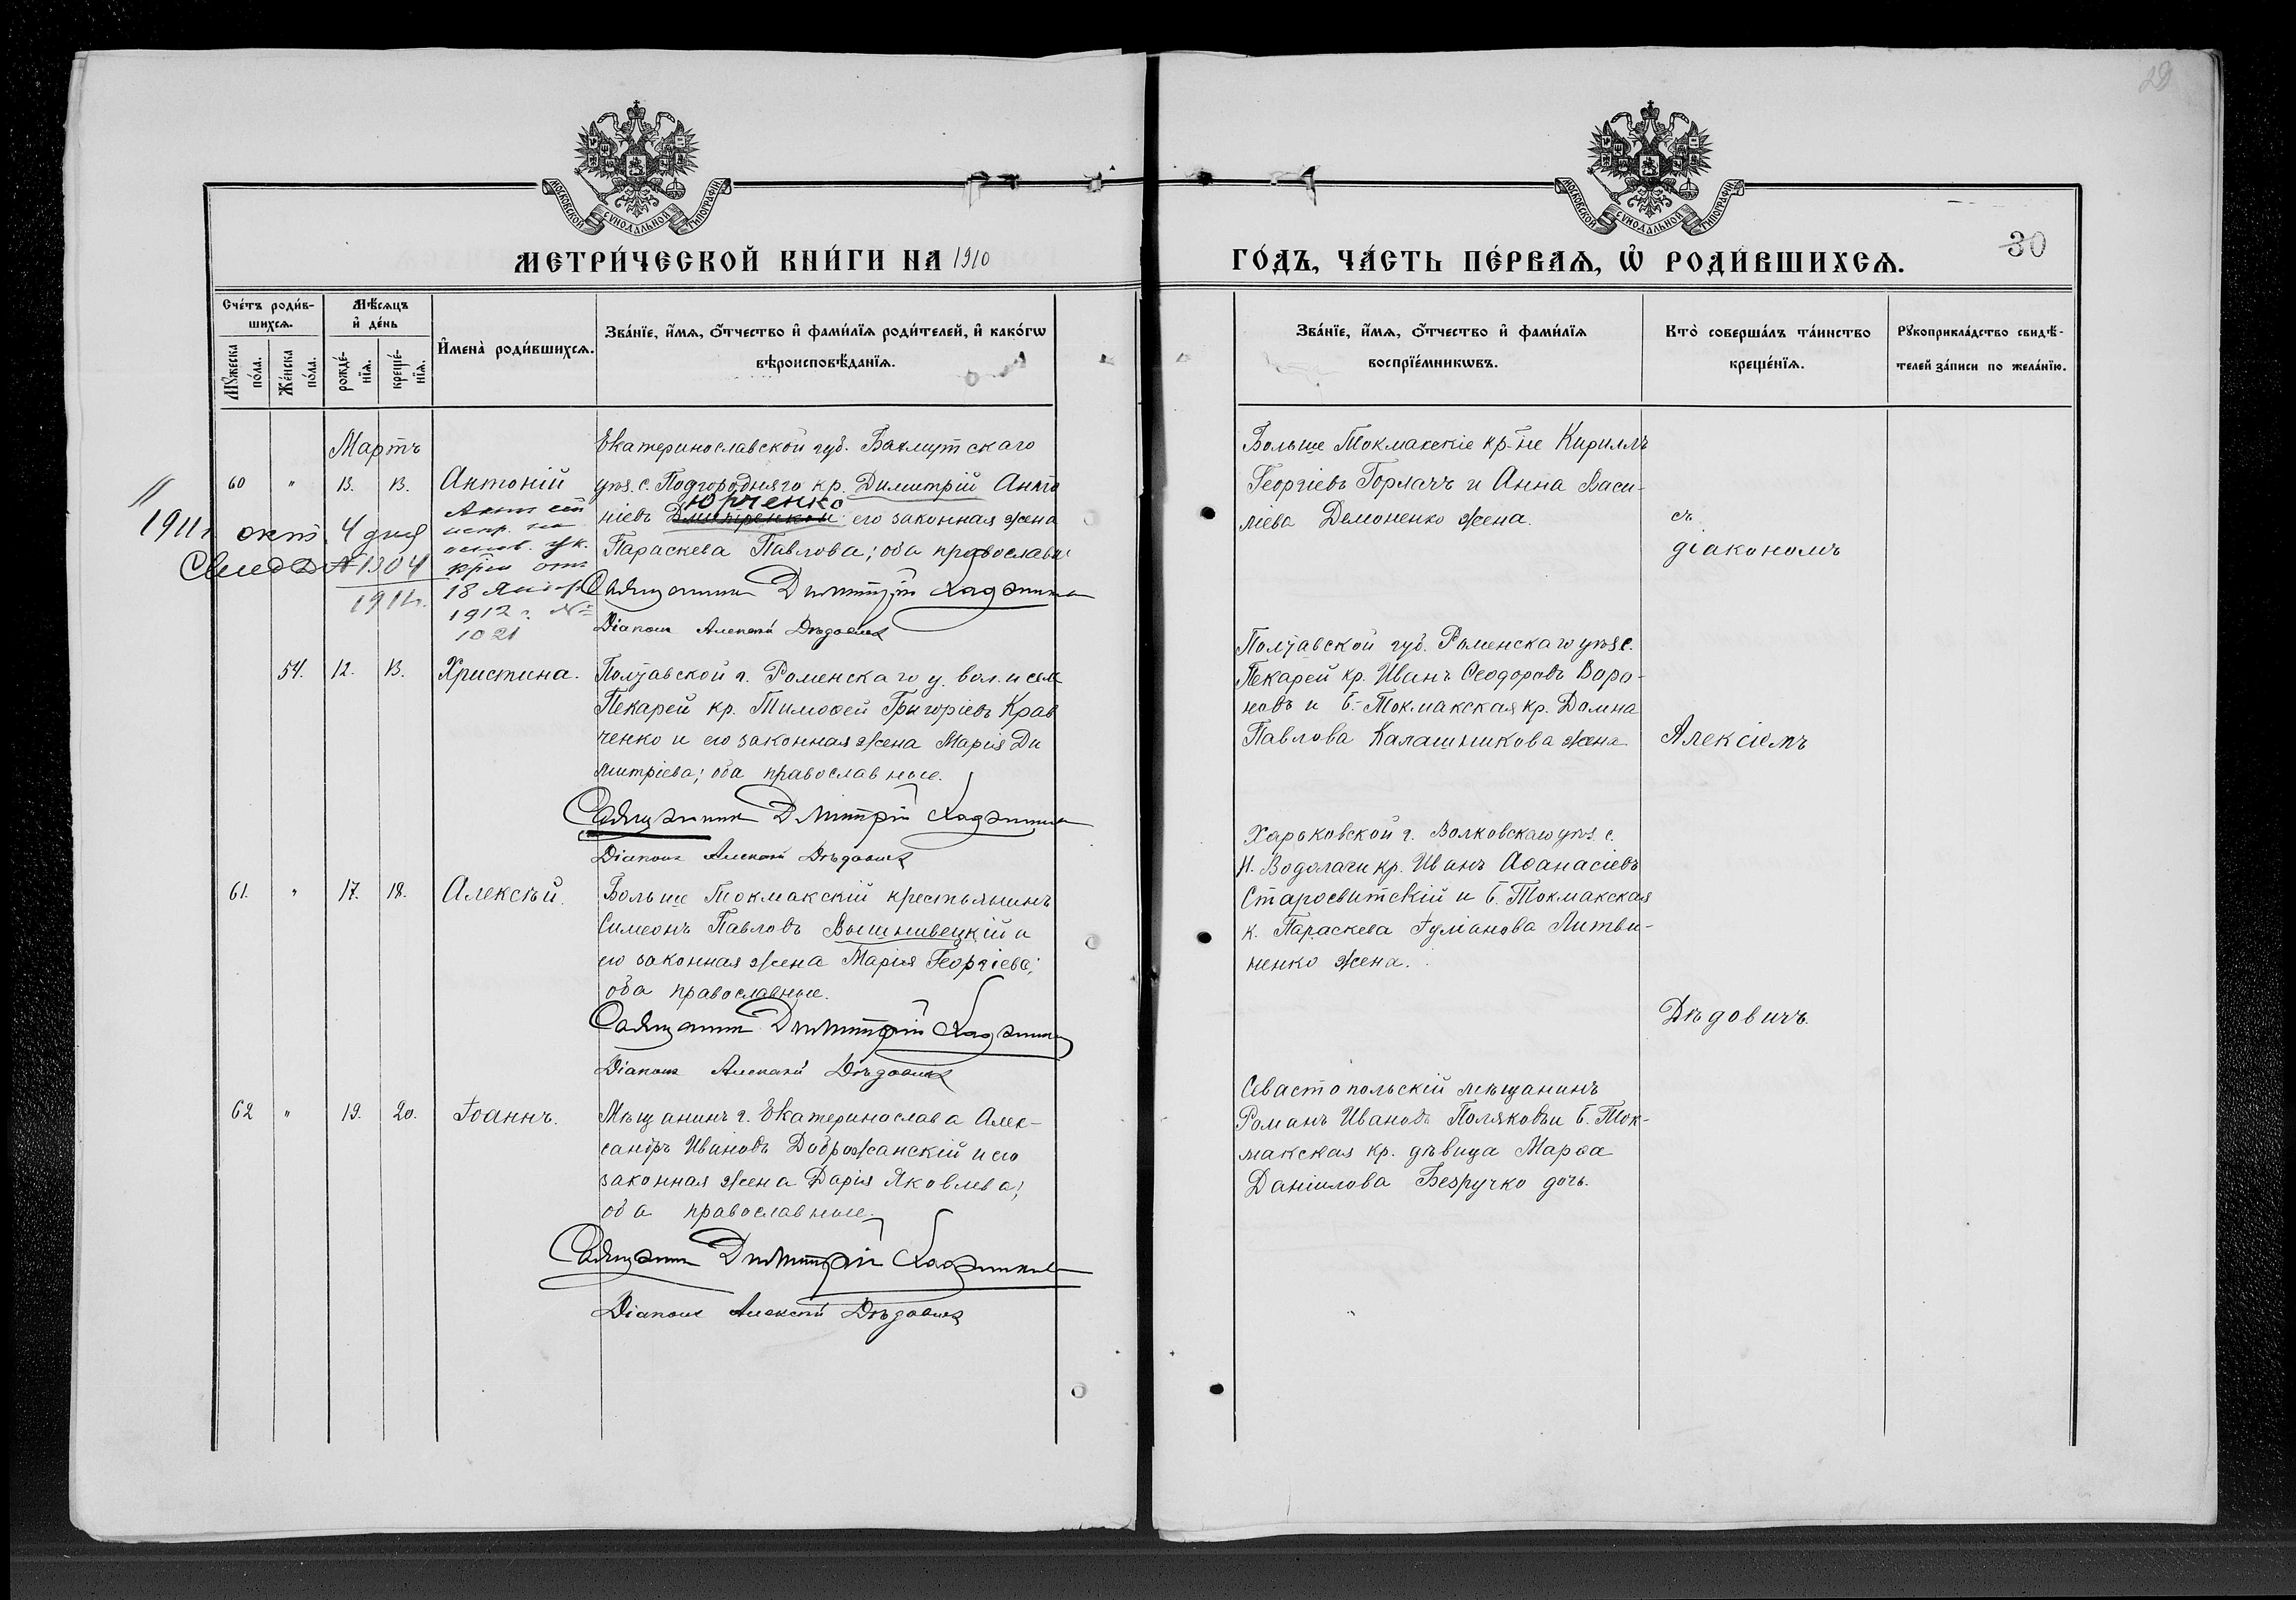 29
МОСКОВСКОЙ СѴНОДАЛЬНОЙ ТИПОГРАФІИ
МОСКОВСКОЙ СѴНОДАЛЬНОЙ ТИПОГРАФІИ
МЕТРИ́ЧЕСКОЙ КНИ́ГИ НА 1910
ГО́ДЪ, ЧА́СТЬ ПЕ́РВАѦ, Ѡ҆ РОДИ́ВШИХСѦ.
30
Сче́тъ роди́в-
шихсѧ.
Мꙋ́жеска по́ла.
Же́нска по́ла.
Мѣ́сѧцъ и҆ де́нь
рожде́-
нїѧ.
креще́-
нїѧ.
И҆мена̀ роди́вшихсѧ.
Зва́нїе, и҆́мѧ, ѻ҆́тчество и҆ фами́лїѧ роди́телей, и҆ како́гѡ
вѣроисповѣ́данїѧ.
Зва́нїе, и҆́мѧ, ѻ҆́тчество и҆ фами́лїѧ
воспрїе́мникѡвъ.
Кто̀ соверша́лъ та́инство
креще́нїѧ.
Рꙋкоприкла́дство свидѣ́-
телей за́писи по жела́нїю.
Мартъ
60 " 13. 13. Антоній
Екатеринославской губ. Бахмутскаго
уѣз. с. Подгородняго кр. Димитрій Анто
Юрченко
ніевъ Дмитренков его законная жена
Параскева Павлова; оба православн:
Священник Димитрій
Діаконъ Алексій Дѣдовичъ
1911 г. окт. 4 дня
Свид № 1304
1911 г.
испр. на
основ. ук.
от
18 Января
1912 г. №
1021
Больше Токмакскіе кр-не Кириллъ
Георгіевъ Горлачъ и Анна Васи-
ліева Демоненко жена.
съ
діакономъ
54. 12. 13. Христина.
Полтавской г. Роменскаго у. вол. и сел
Пекарей кр. Тимофей Григоріевъ Крав
ченко и его законная жена Марія Ди
митріева; оба православные.
Священник Димитрій
Діаконъ Алексій Дѣдовичъ
Полтавской губ. Роменскаго уѣз. с.
Пекарей кр. Иванъ Ѳеодоровъ Воро-
новъ и Б.-Токмакская кр. Домна
Павлова Калашникова жена
Алексіемъ
61. " 17. 18. Алексѣй.
Больше Токмакскій крестьянинъ
Симеонъ Павловъ Вышнивецкій и
его законная жена Марія Георгіева;
оба православные.
Священник Димитрій
Діаконъ Алексій Дѣдовичъ
Харьковской г. Волковскаго уѣз. с.
Н. Водолаги кр. Иванъ Аѳанасіевъ
Старосвитскій и Б. Токмакская
к. Параскева Іуліанова Литви-
ненко жена.
Дѣдовичъ.
62 " 19. 20. Іоаннъ.
Мѣщанинъ г. Екатеринослава Алек-
сандръ Ивановъ Доброжанскій и его
законная жена Дарія Яковлева;
оба православные.
Священник Димитрій
Діаконъ Алексій Дѣдовичъ
Севастопольскій мѣщанинъ
Романъ Ивановъ Поляковъ и Б. Ток-
макская кр. дѣвица Марѳа
Даніилова Безручко дочь.